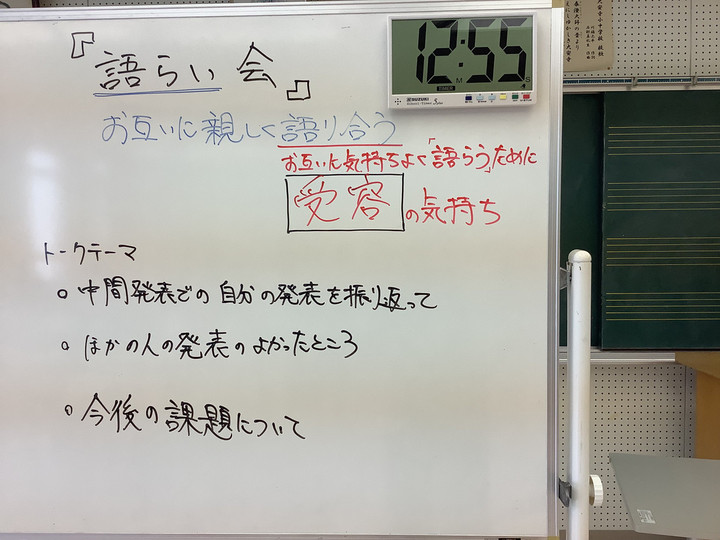 『語らい会』
お互いに親しく語り合う
お互いに気持ちよく「語らう」ために
受容の気持ち
トークテーマ
○中間発表での自分の発表を振り返って
○ほかの人の発表のよかったところ
○今後の課題について
12:55
M
S
TIMER